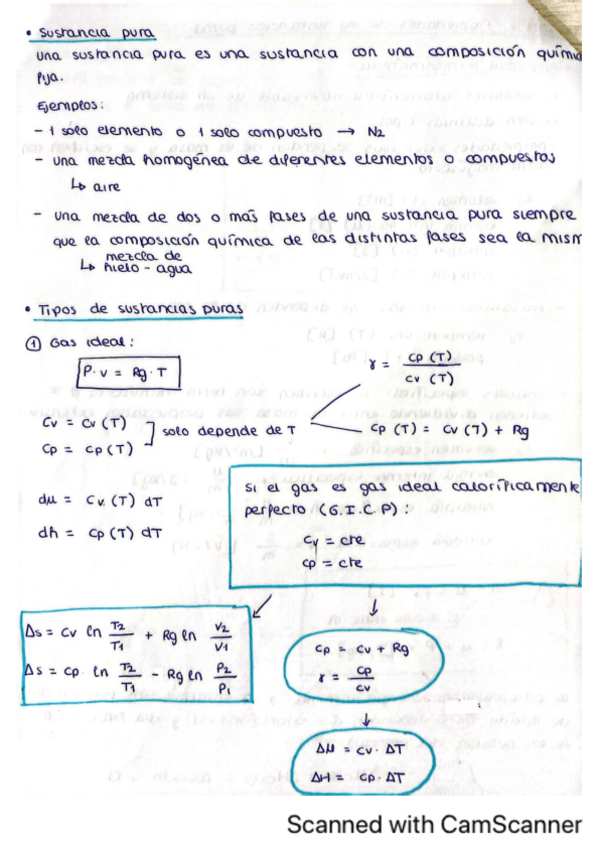 • Sustancia pura
una sustancia pura es una sustancia con una composición químic
fija.
Ejemplos:
- 1 solo elemento o 1 solo compuesto → N₂
- una mezcla homogénea de diferentes elementos o compuestos
↳ aire
- una mezcla de dos o más fases de una sustancia pura siempre
que la composición química de las distintas fases sea la mism
mezcla de
↳ hielo - agua
• Tipos de sustancias puras
① Gas ideal:
P·v = Rg·T
γ = cp (T) / cv (T)
Cv = Cv (T)
Cp = cp (T)
] solo depende de T
cp (T) = cv (T) + Rg
dμ = Cv (T) dT
dh = cp (T) dT
si el gas es gas ideal caloríficamente
perfecto (G.I.C.P):
cv = cte
cp = cte
Δs = cv ln T2/T1 + Rg ln V2/V1
Δs = cp ln T2/T1 - Rg ln P2/P1
cp = cv + Rg
γ = cp/cv
Δμ = cv · ΔT
ΔH = cp · ΔT
Scanned with CamScanner